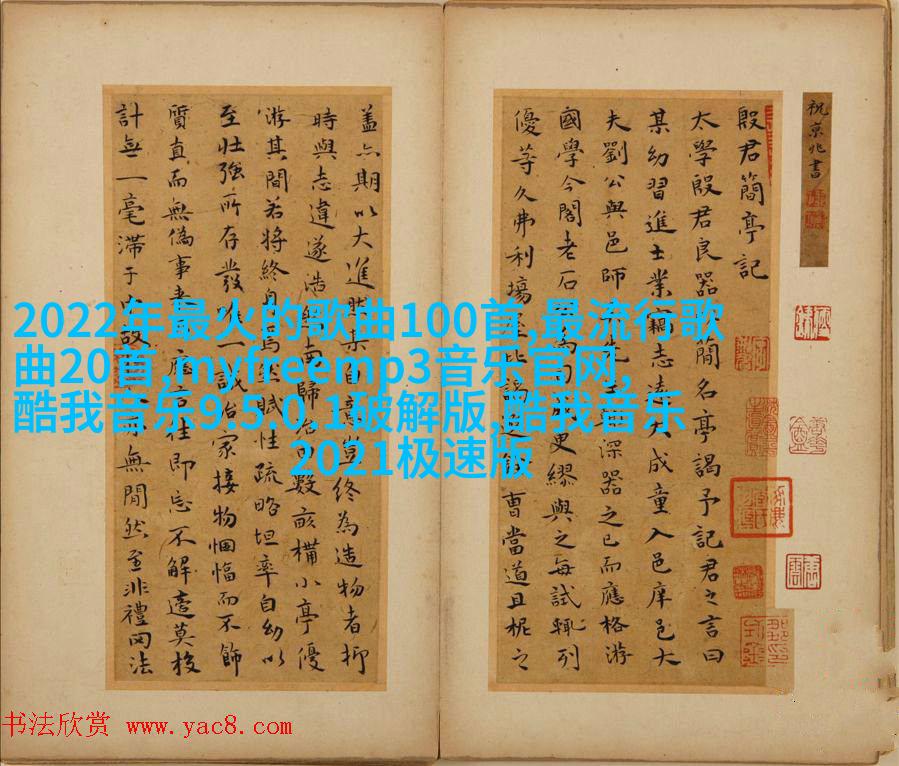 祝京兆書
殷君簡亭記
太學殷君良器簡名亭謁予記君之言曰
某幼習進士業竊志遠大成童入邑庠邑大
夫劉公與邑師先生深器之已而應格游
國學今閣老石更繆與之每試輒列
優等久弗利場屋比謁選曹當道且柅之
蓋亦期以大進某自意豈終為造物者抑
時與志違遂浩然南歸治田數畝構小亭優
游其間若將終身焉賦性疏略坦率自幼以
至壯強所存發惟一誠治家接物悃愊而不飾
質真而無偽事應往即忘不解莫校
計無一毫滯于中故無間然至非禮罔法
2022年最火的歌曲100首,最流行歌
曲20首,myfreemp3音乐官网,
酷我音乐9.5.0.1破解版,酷我音乐
2021极速版
书法欣赏 www.yac8.com